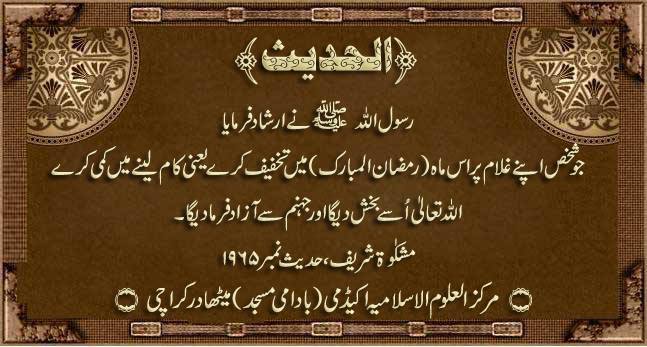 الحدیث
رسول اللہ ﷺ نے ارشاد فرمایا
جو شخص اپنے غلام پر اس ماہ (رمضان المبارک) میں تخفیف کرے یعنی کام لینے میں کمی کرے
اللہ تعالیٰ اُسے بخش دیگا اور جہنم سے آزاد فرما دیگا۔
مشکوٰۃ شریف، حدیث نمبر ۱۹۶۵
مرکز العلوم الاسلامیہ اکیڈمی (بادامی مسجد) میٹھادر کراچی